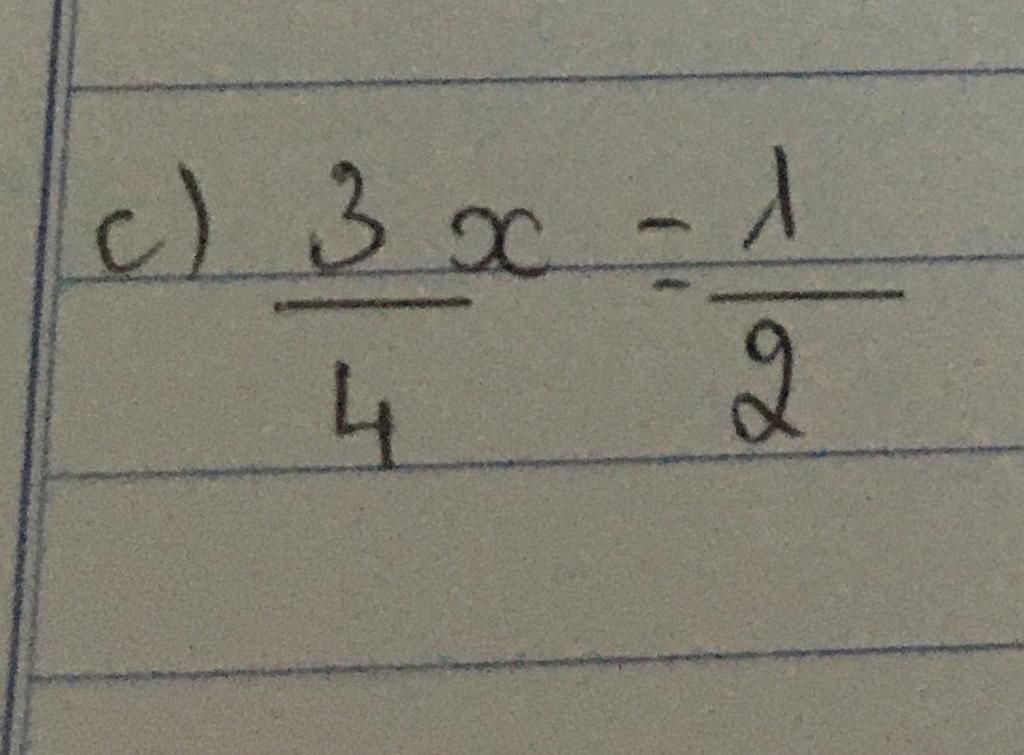 c) 3/4 x = 1/2